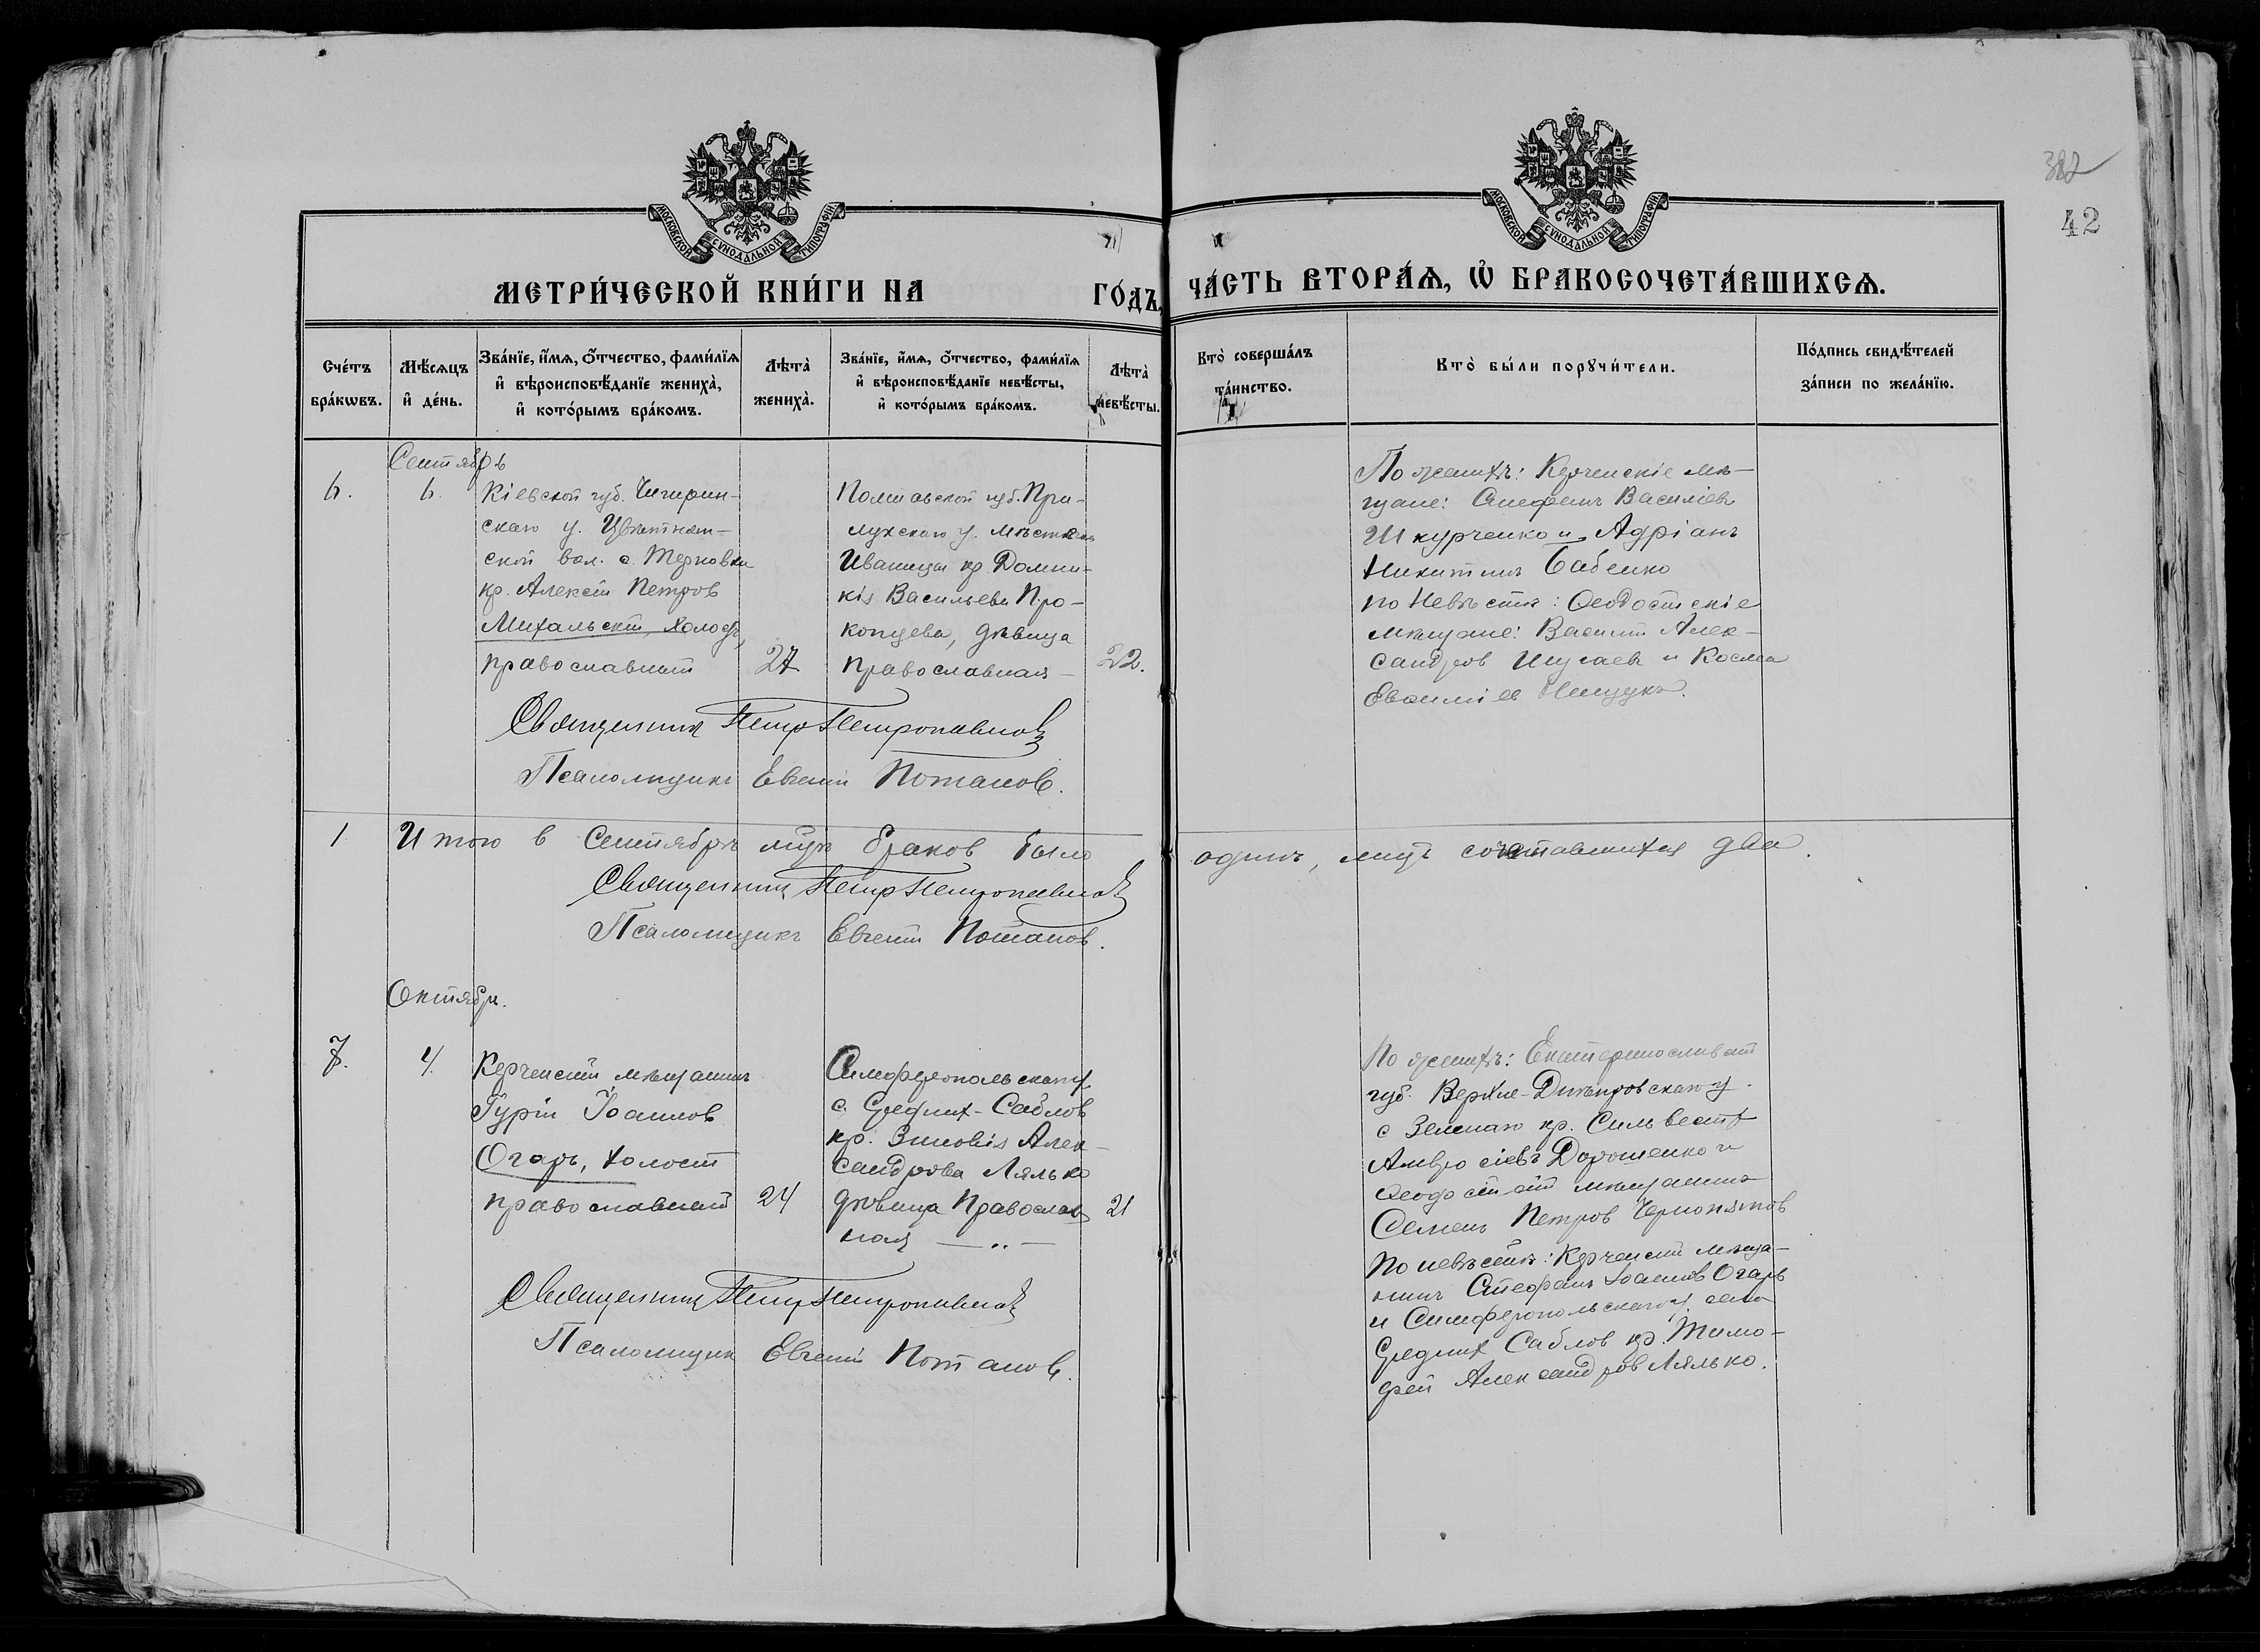 382
42
МОСКОВСКОЙ СѴНОДАЛЬНОЙ ТИПОГРАФІИ
МОСКОВСКОЙ СѴНОДАЛЬНОЙ ТИПОГРАФІИ
МЕТРИ́ЧЕСКОЙ КНИ́ГИ НА ГО́ДЪ,
ЧА́СТЬ ВТОРА́Ѧ, Ѽ БРАКОСОЧЕТА́ВШИХСѦ.
Сче́тъ бра́кѡвъ.
Мѣ́сѧцъ и҆ де́нь.
Зва́нїе, и҆́мѧ, ѻ҆́тчество, фами́лїѧ
и҆ вѣроисповѣ́данїе жениха̀,
и҆ кото́рымъ бра́комъ.
Лѣта̀ жениха̀.
Зва́нїе, и҆́мѧ, ѻ҆́тчество, фами́лїѧ
и҆ вѣроисповѣ́данїе невѣ́сты,
и҆ кото́рымъ бра́комъ.
Лѣта̀ невѣ́сты.
Кто̀ соверша́лъ та́инство.
Кто̀ бы́ли порꙋчи́тели.
По́дпись свидѣ́телей
за́писи по жела́нїю.
Сентябрь
6.
6.
Кіевской губ. Чигирин-
скаго у. Цвѣтнян-
ской вол. с. Терновки
кр. Алексѣй Петров
Михальскій, холост,
православный
27
Полтавской губ. При-
лукскаго у. мѣстечка
Иваницы кр. Домни-
кія Васильева Про-
копцева, дѣвица
православная
22.
По женихѣ: Керченскіе мѣ-
щане: Стефанъ Василіев
Шкурченко и Адріанъ
Никитинъ Бабенко
по невѣстѣ: Ѳеодосійскіе
мѣщане: Василій Алек-
сандров и Косма
Священникъ Петр Петропавлов
Псаломщикъ Евгеній Потапов.
1
Итого в Сентябрѣ мцѣ браков было
одинъ, лицъ сочетавшихся два.
Священникъ Петр Петропавлов
Псаломщикъ Евгеній Потапов.
Октябрь.
7.
4.
Керченскій мѣщанинъ
Гурій Іоаннов
Огарь, холост
православный
24
Симферопольскаго у.
с. Средних-Саблов
кр. Зиновія Алек-
сандрова Лялько
дѣвица Православ
ная — „ —
21
По женихѣ: Екатеринославской
губ. Верхне-Днѣпровскаго у.
с. кр. Сильвестр
Амвросіевъ Дорошенко и
Ѳеодосійскій мѣщанинъ
Семенъ Петров
по невѣстѣ: Керченскій мѣща-
нинъ Стефанъ Іоаннов Огарь
и Симферопольскаго у. села
Средних Саблов кр. Тимо-
фей Александров Лялько.
Священникъ Петр Петропавлов
Псаломщик Евгеній Потапов.